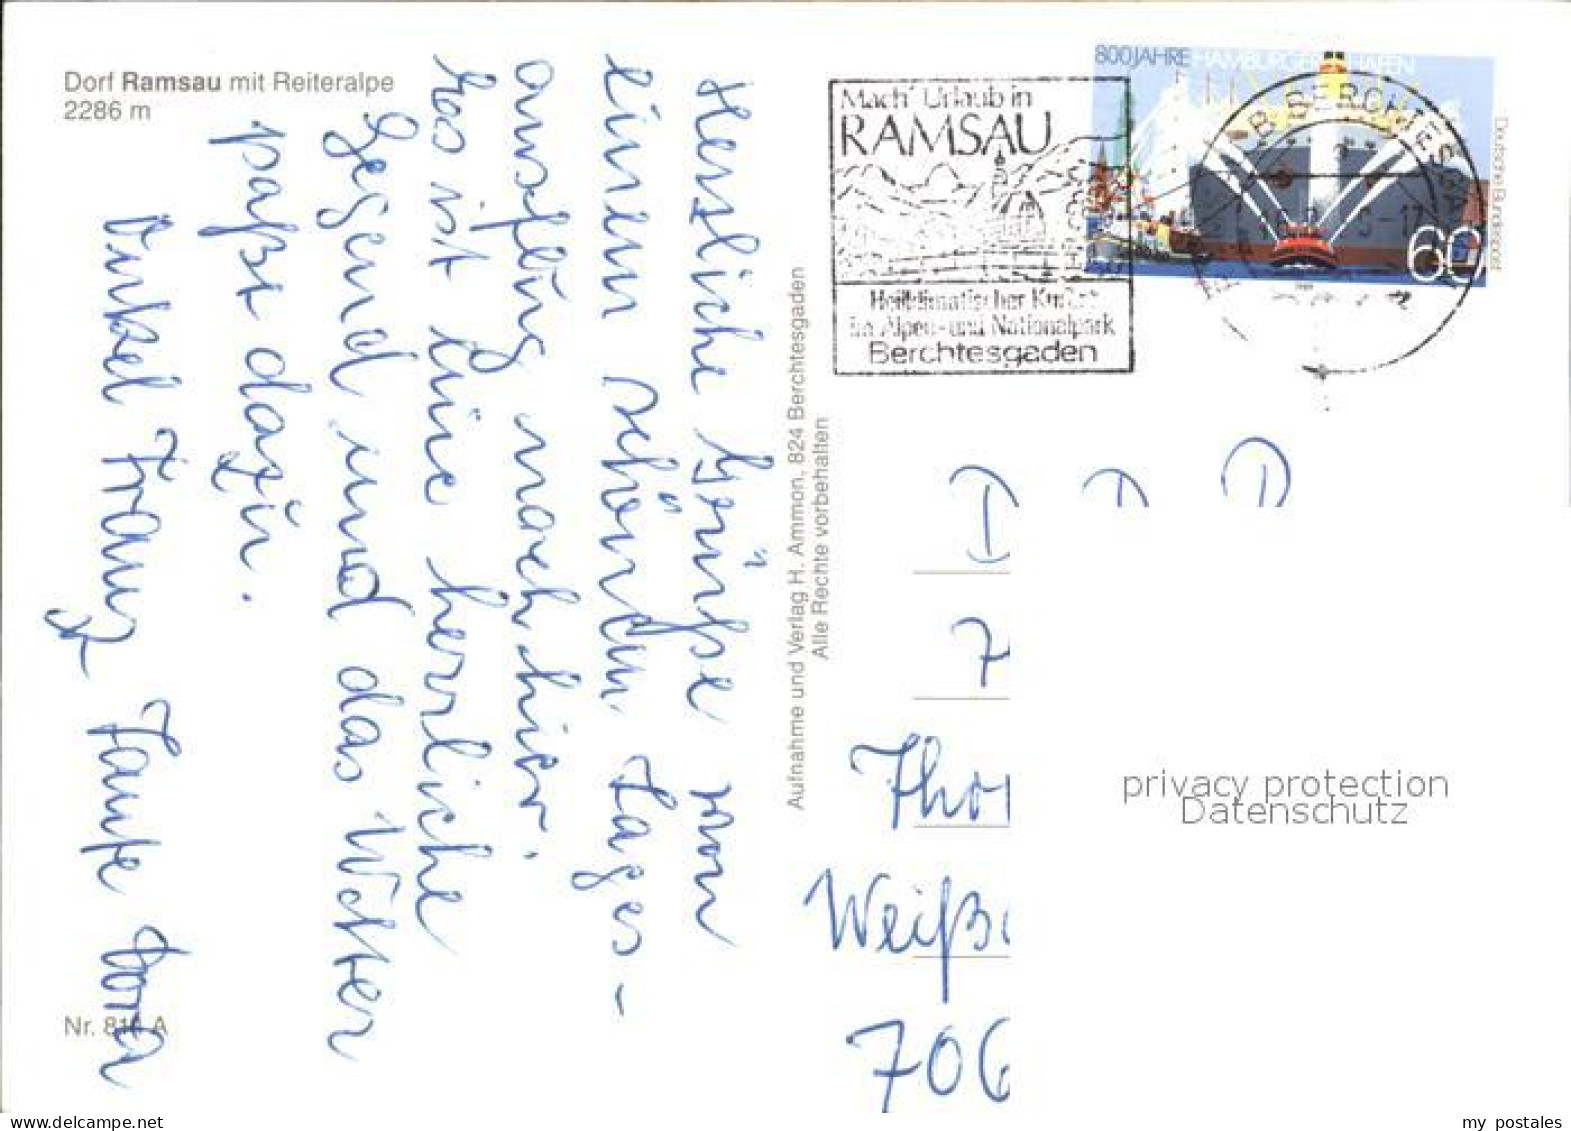 Dorf Ramsau mit Reiteralpe
2286 m
Herzliche Grüße von
einem schönen Tages-
ausflug nach hier.
Es ist eine herrliche
Gegend und das Wetter
paßt dazu.
Onkel Franz Tante Dora
Nr. 811 A
Aufnahme und Verlag H. Ammon, 824 Berchtesgaden
Alle Rechte vorbehalten
Mach' Urlaub in
RAMSAU
Heilklimatischer Kurort
im Alpen- und Nationalpark
Berchtesgaden
800 JAHRE HAMBURGER HAFEN
60
Deutsche Bundespost
BERCHTESGADEN
D D D
7
Thor
Weiß
706
privacy protection
Datenschutz
my postales
www.delcampe.net